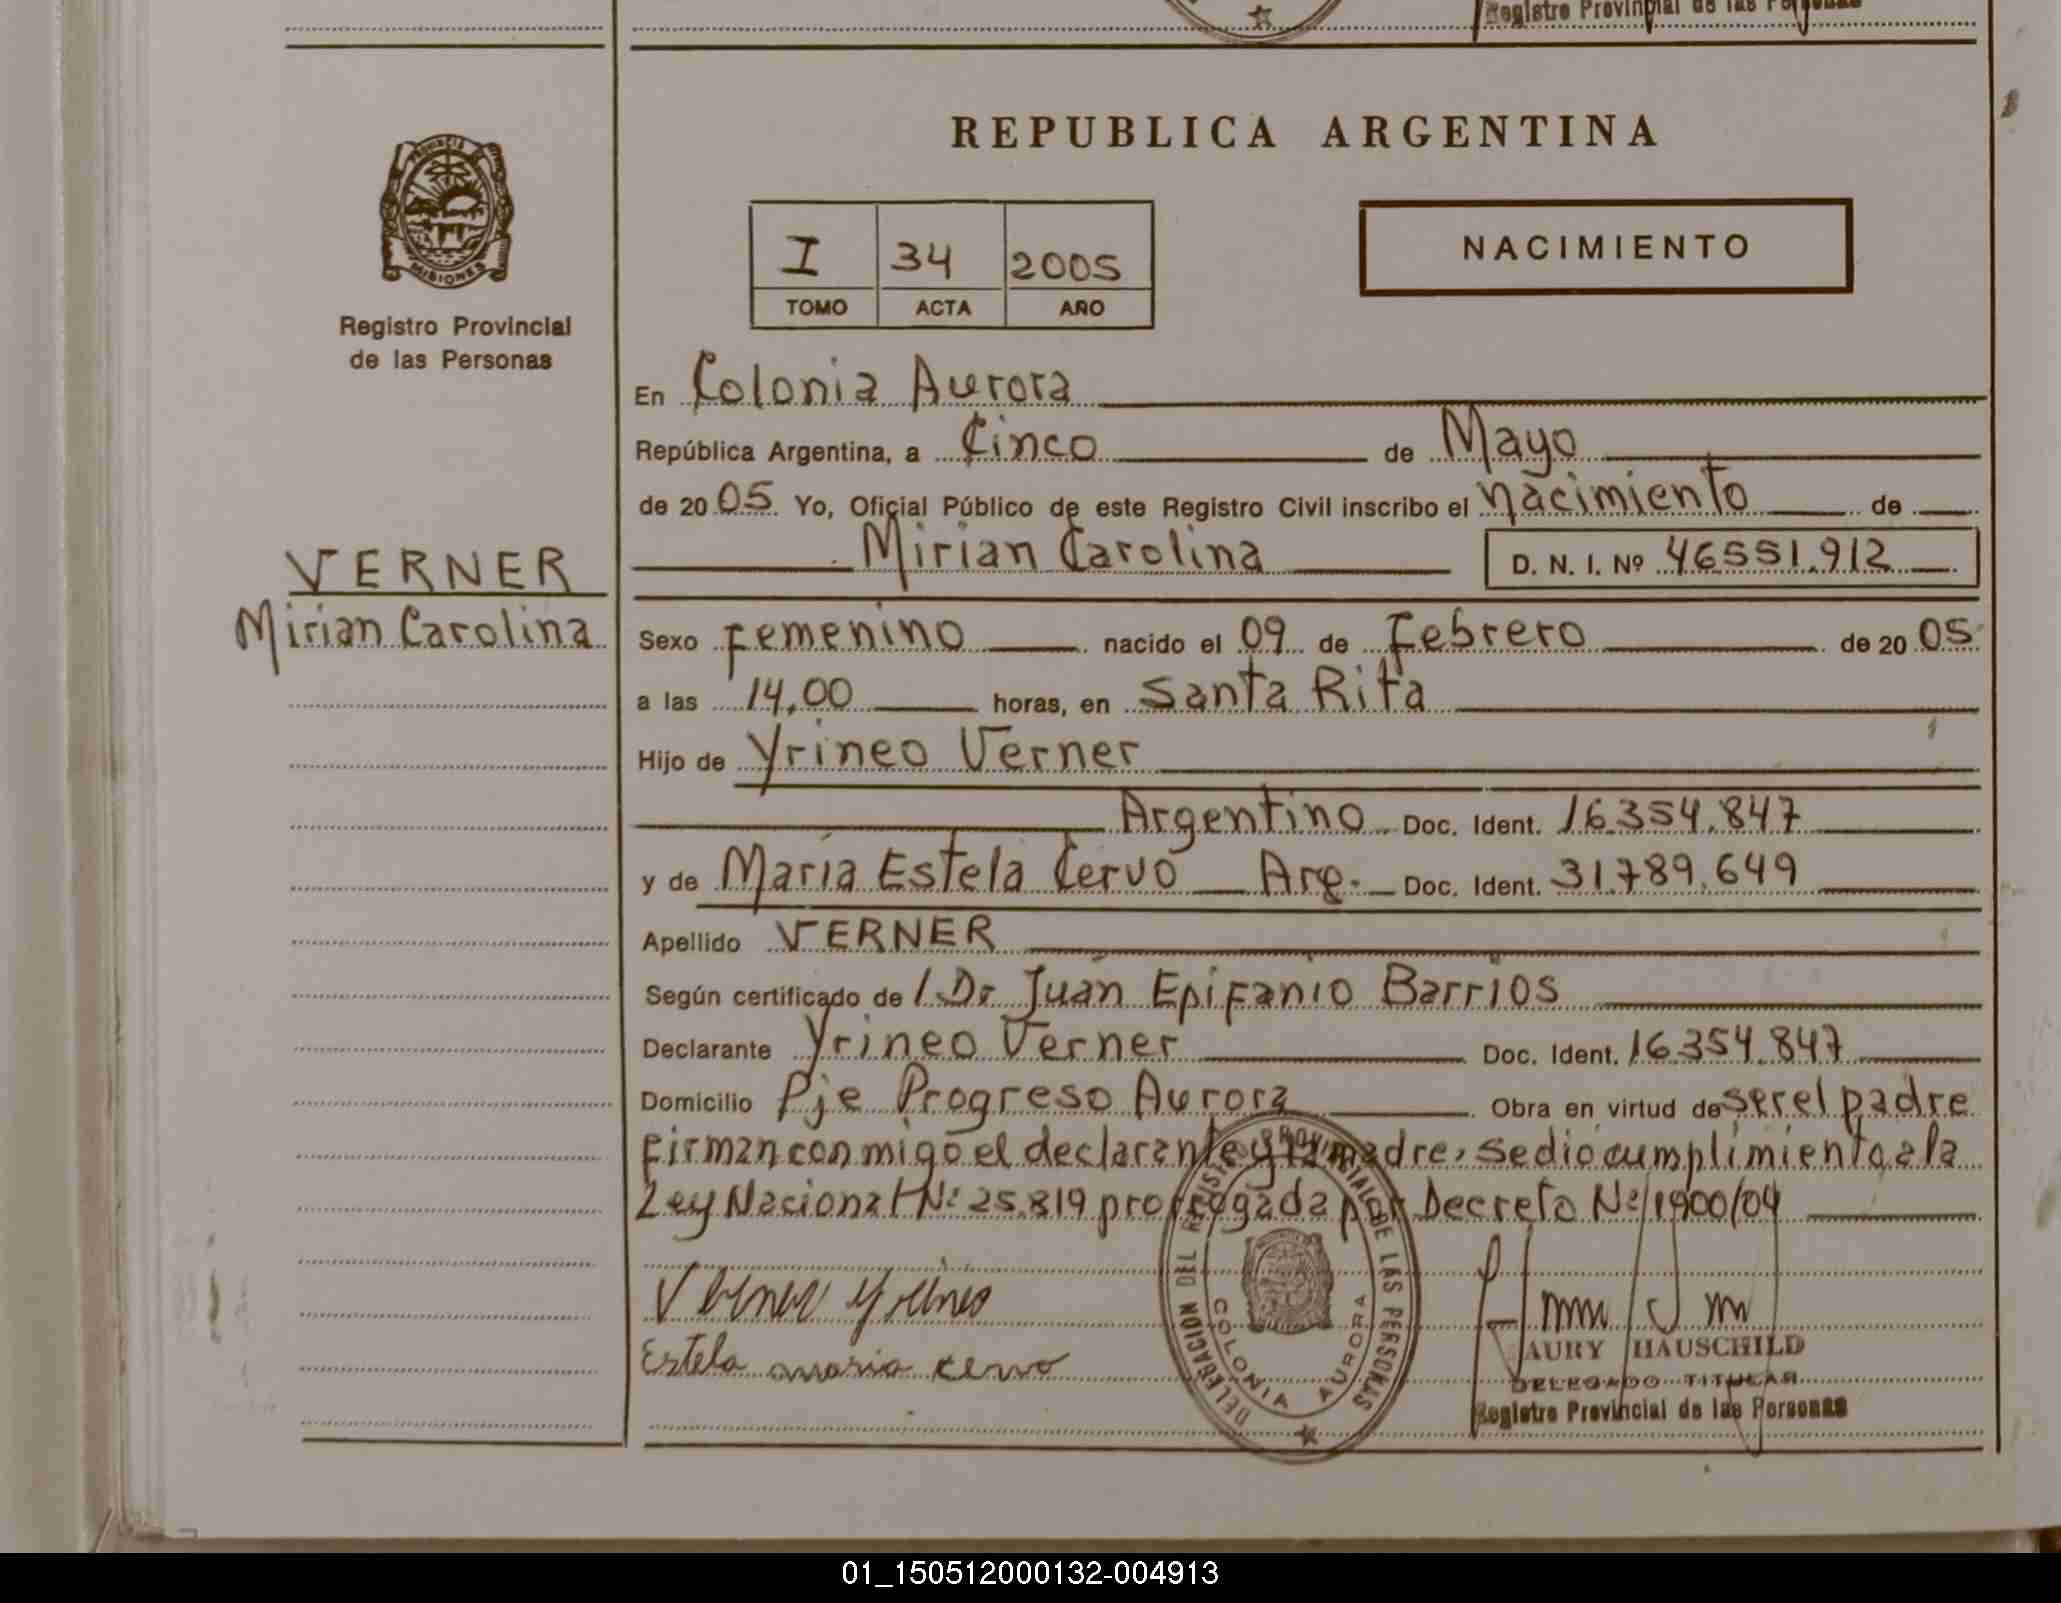 Registro Provincial de las Personas
PROVINCIA DE
MISIONES
Registro Provincial
de las Personas
VERNER
Mirian Carolina
REPUBLICA ARGENTINA
I 34 2005
TOMO ACTA AÑO
NACIMIENTO
En Colonia Aurora
República Argentina, a Cinco de Mayo
de 2005 Yo, Oficial Público de este Registro Civil inscribo el nacimiento de
Mirian Carolina D. N. I. Nº 46551.912
Sexo Femenino nacido el 09 de Febrero de 2005
a las 14,00 horas, en Santa Rita
Hijo de Yrineo Verner
Argentino Doc. Ident. 16.354.847
y de María Estela Cervo Arg. Doc. Ident. 31.789.649
Apellido VERNER
Según certificado de / Dr Juan Epifanio Barrios
Declarante Yrineo Verner Doc. Ident. 16.354.847
Domicilio Pje Progreso Aurora Obra en virtud de ser el padre
Firman conmigo el declarante y la madre, se dio cumplimiento a la
Ley Nacional Nº 25.819 prorrogada por Decreto Nº 1900/04
Verner Yrineo
Estela maria cervo
DELEGACION DEL REGISTRO PROVINCIAL DE LAS PERSONAS
COLONIA AURORA
AURY HAUSCHILD
DELEGADO TITULAR
Registro Provincial de las Personas
01_150512000132-004913